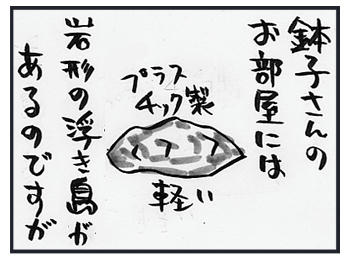 鉢子さんの
お部屋には
プラス
チック製
軽い
岩形の浮き島が
あるのですが